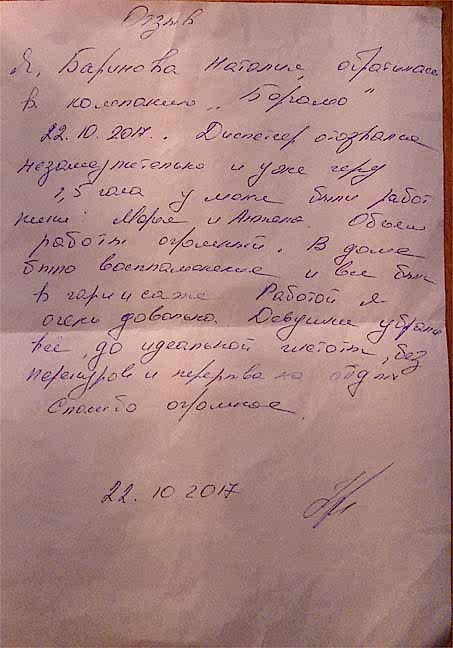 Отзыв
Я, Баринова Наталия, обратилась
в компанию "Бергамо"
22.10.2017. Диспетчер отозвался
незамедлительно и уже через
1,5 часа у меня были работ
ницы: Марья и Антона. Объем
работы огромный. В доме
было воспламенение и все было
в гари и саже Работой я
очень довольна. Девушки убрали
всё, до идеальной чистоты, без
перекуров и перерыва на отдых
Спасибо огромное.
22.10.2017